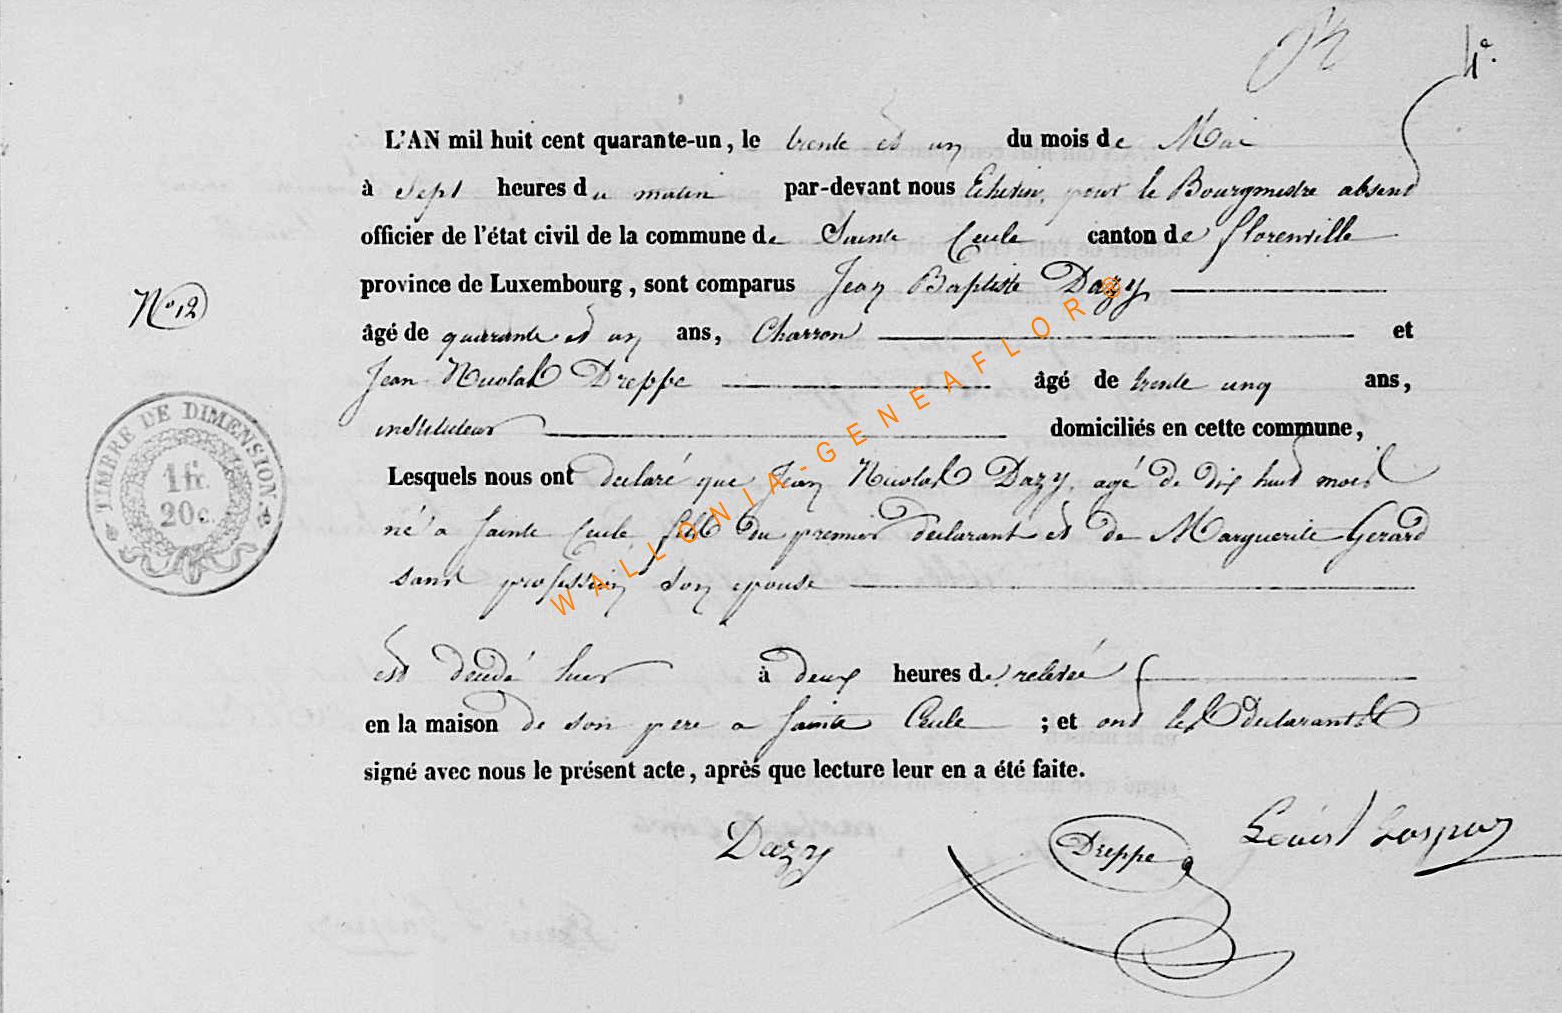 4e.
L'AN mil huit cent quarante-un, le trente et un du mois de Mai
à Sept heures du matin par-devant nous Echevin, pour le Bourgmestre absent
officier de l'état civil de la commune de Sainte Cecile canton de florenville
province de Luxembourg, sont comparus Jean Baptiste Dazy
No 12
âgé de quarante et un ans, Charron et
Jean Nicolas Dreppe âgé de trente cinq ans,
instituteur domiciliés en cette commune,
Lesquels nous ont declaré que Jean Nicolas Dazy, agé de dix huit mois
né a Sainte Cecile fils du premier declarant et de Marguerite Gerard
sans profession son epouse
est decedé hier à deux heures de relevée
en la maison de son pere a Sainte Cecile ; et ont les declarants
signé avec nous le présent acte, après que lecture leur en a été faite.
TIMBRE DE DIMENSION.
1 fr.
20 c.
WALLONIA-GENEAFLOR®
Dazy
Dreppe